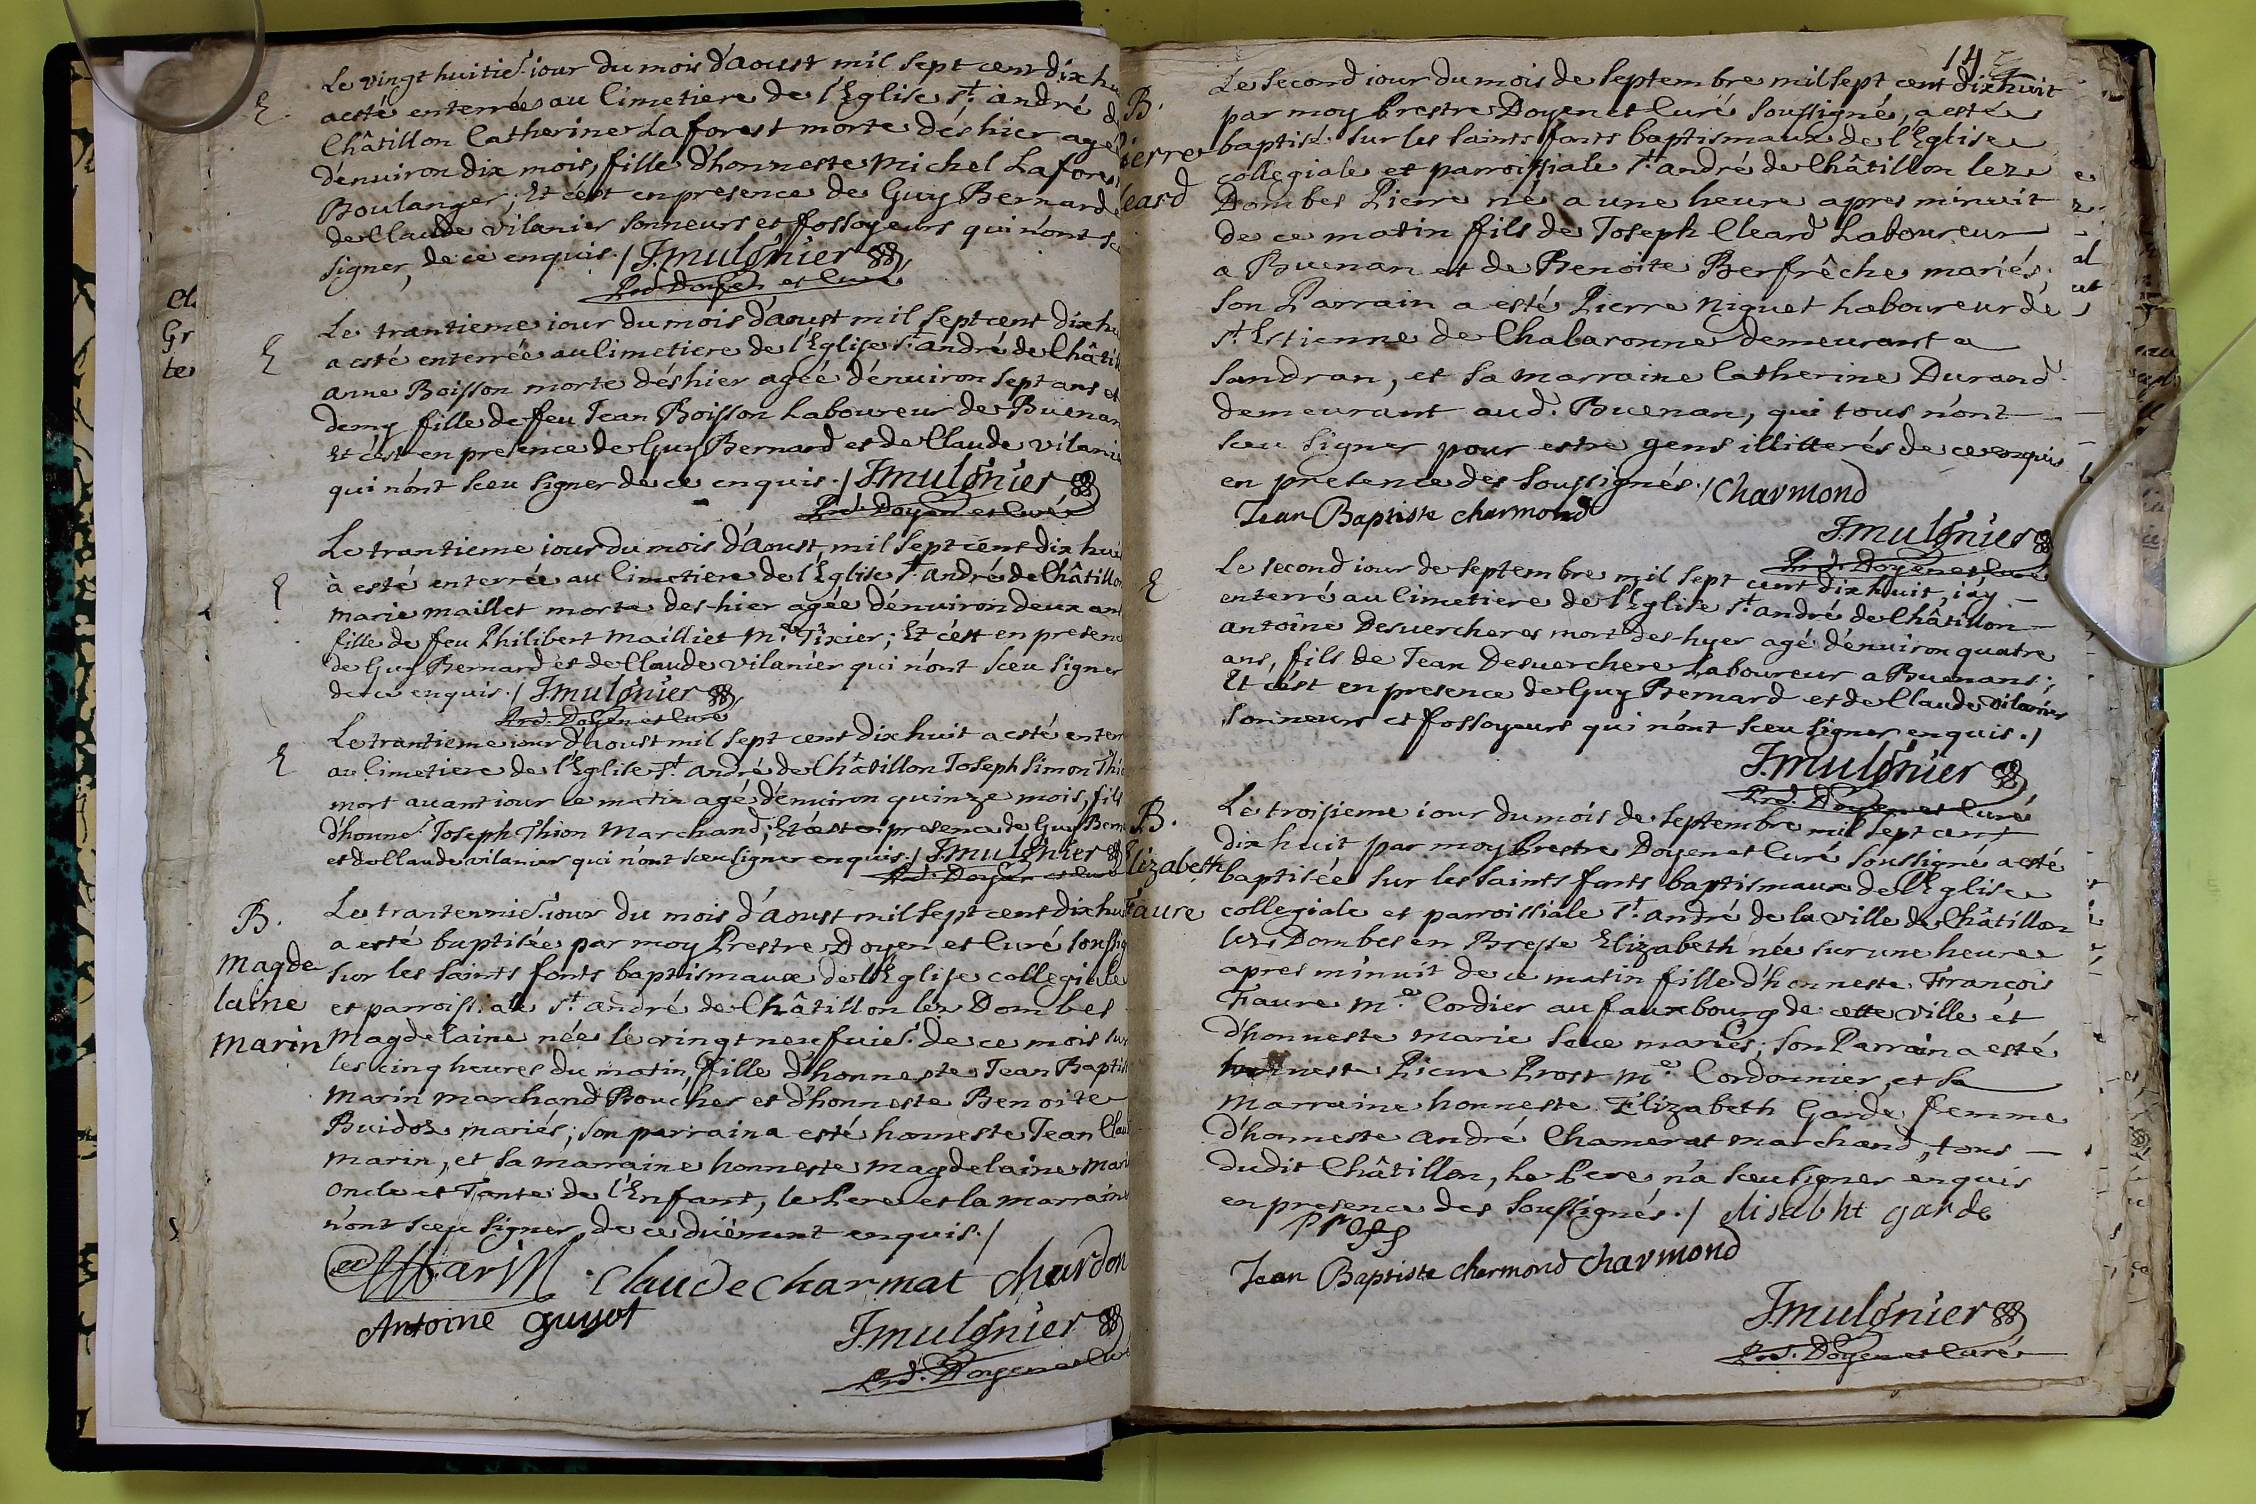 Le vingt huitie. iour du mois d'aoust mil sept cent dix hu
E. a esté enterrée au Cimetiere de l'Eglise St. andré d
Châtillon Catherine Laforest morte dés hier agé
d'enuiron dix mois, fille d'honneste Michel Lafores
Boulanger; Et c'est en presence de Guy Bernard e
de Claude vilanier sonneurs et fossoyeurs qui n'ont sc
signer, de ce enquis./ J. mulsnier
Prd. Doyen et Curé
Le trantieme iour du mois d'aoust mil sept cent dix hu
E a esté enterrée au Cimetiere de l'Eglise St. andré de Châtill
anne Boisson morte dés hier agée d'enuiron sept ans et
demy fille de feu Jean Boisson Laboureur de Buenan
Et c'est en presence de Guy Bernard et de Claude vilanie
qui n'ont sceu signer de ce enquis./ J. mulsnier
Prd. Doyen et Curé
Le trantieme iour du mois d'aoust mil sept cent dix hui
E à esté enterrée au Cimetiere de l'Eglise St. andré de Châtillon
marie maillet morte des-hier agée d'enuiron deux an
fille de feu Philibert mailliet me. Tixier; Et c'est en presenc
de Guy Bernard et de Claude vilanier qui n'ont sceu signer
de ce enquis./ J. mulsnier
Prd. Doyen et Curé
Le trantieme iour d'aoust mil sept cent dix huit a esté enterr
E au Cimetiere de l'Eglise St. andré de Châtillon Joseph Simon Thio
mort auant iour ce matin agé d'enuiron quinze mois, fils
d'honne. Joseph Thion Marchand; Et c'est en presence de Guy Berna
et de Claude vilanier qui n'ont sceu signer enquis./ J. mulsnier
Prd. Doyen et Curé
B.
Magde
laine
Marin
Le trantennie. iour du mois d'aoust mil sept cent dix hu
a esté baptisée par moy Prestre Doyen et Curé soussig
sur les saints fonts baptismaux de l'Eglise collegiale
et parroissiale St. andré de Châtillon lez Dombes
Magdelaine née le vingt neufuie. de ce mois sur
les cinq heures du matin, fille d'honneste Jean Baptis
Marin marchand Boucher et d'honneste Benoite
Buidoz mariés; son parrain a esté honneste Jean Clau
Marin, et sa marraine honneste Magdelaine Mari
oncle et Tante de l'Enfant, le Pere et la marraine
n'ont sceu signer de ce duëment enquis./
Marin Claude Charmat Chardon
Antoine guyot
J. mulsnier
Prd. Doyen et Cur
14
B.
Pierre
Cleard
Le second iour du mois de septembre mil sept cent dix huit
par moy Prestre Doyen et Curé soussigné, a esté
baptisé sur les saints fonts baptismaux de l'Eglise
collegiale et parroissiale St. andré de Châtillon lez
Dombes Pierre né a une heure apres minuit
de ce matin fils de Joseph Cleard Laboureur
a Buenan et de Benoite Berfrêche mariés,
son Parrain a esté Pierre Niguet Laboureur de
St. Estienne de Chalaronne demeurant a
Sandran, et sa marraine Catherine Durand
demeurant aud. Buenan, qui tous n'ont
sceu signer pour estre gens illitterés de ce enquis
en presence des soussignés./ Charmond
Jean Baptiste charmond
J. mulsnier
Prd. Doyen et Curé
Le second iour de septembre mil sept cent dix huit, i'ay
E enterré au Cimetiere de l'Eglise St. andré de Châtillon
antoine Desuercheres mort des-hyer agé d'enuiron quatre
ans, fils de Jean Desuerchere Laboureur a Buenans;
Et c'est en presence de Guy Bernard et de Claude vilanier
sonneurs et fossoyeurs qui n'ont sceu signer enquis./
J. mulsnier
Prd. Doyen et Curé
B.
Elizabeth
Faure
Le troisieme iour du mois de septembre mil sept cent
dix huit par moy Prestre Doyen et Curé soussigné a esté
baptisée sur les saints fonts baptismaux de l'Eglise
collegiale et parroissiale St. andré de la ville de Châtillon
lez Dombes en Bresse Elizabeth née sur une heure
apres minuit de ce matin fille d'honneste François
Faure me. Cordier au fauxbourg de cette ville et
d'honneste marie Seue mariés; son Parrain a esté
honneste Pierre Prost me. Cordonnier, et sa
marraine honneste Elizabeth Garde femme
d'honneste andré Chamerat marchand, tous
dudit Châtillon, le Pere n'a sceu signer enquis
en presence des soussignés./ elisabht garde
Prost
Jean Baptiste charmond Charmond
J. mulsnier
Prd. Doyen et Curé